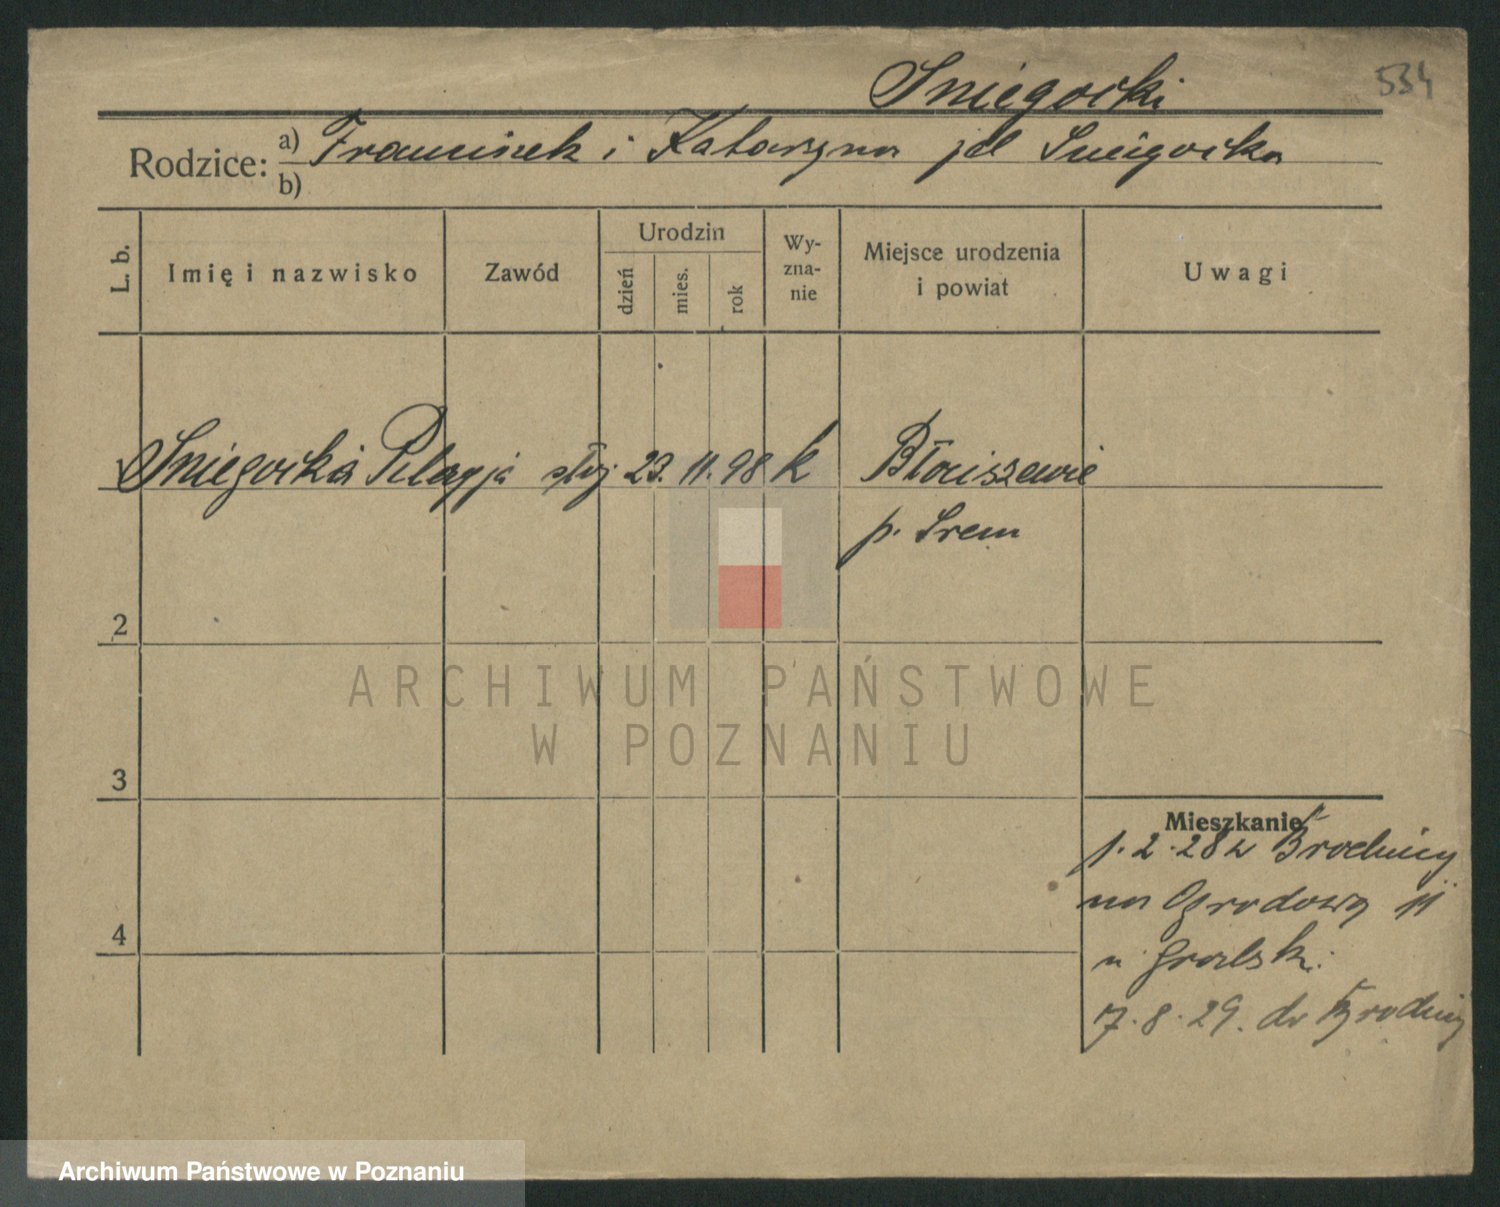 Śniegocki 534
Rodzice: a) Franciszek i Katarzyna jd Śniegocka
b)
L. b. Imię i nazwisko Zawód Urodzin dzień mies. rok Wyznanie Miejsce urodzenia i powiat Uwagi
Śniegocka Pelagja służ 23. 11. 98 k Błociszewie
p. Srem
2
3
4
Mieszkanie
1. 2. 28 z Brodnicy
na Ogrodową 11
u Gralsk.
7. 8. 29. do Brodnicy
ARCHIWUM PAŃSTWOWE
W POZNANIU
Archiwum Państwowe w Poznaniu